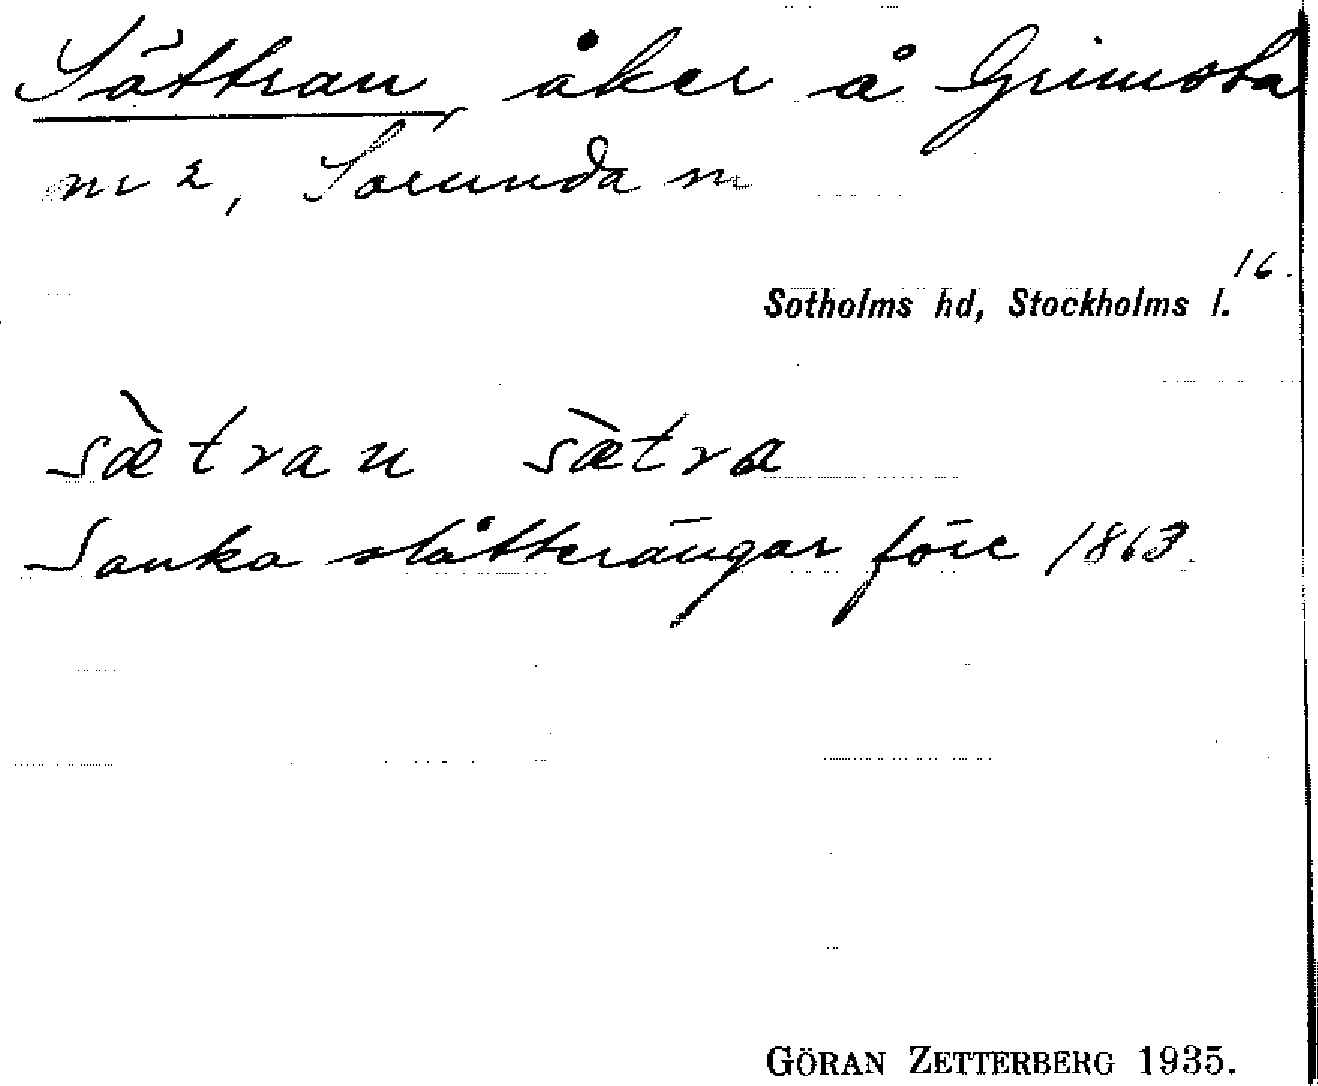 Sättran, åker å Grimsta
m 2, Sorunda sn
16.
Sotholms hd, Stockholms l.
sæ̀tran sæ̀tra
Sanka slåtterängar före 1863.
GÖRAN ZETTERBERG 1935.